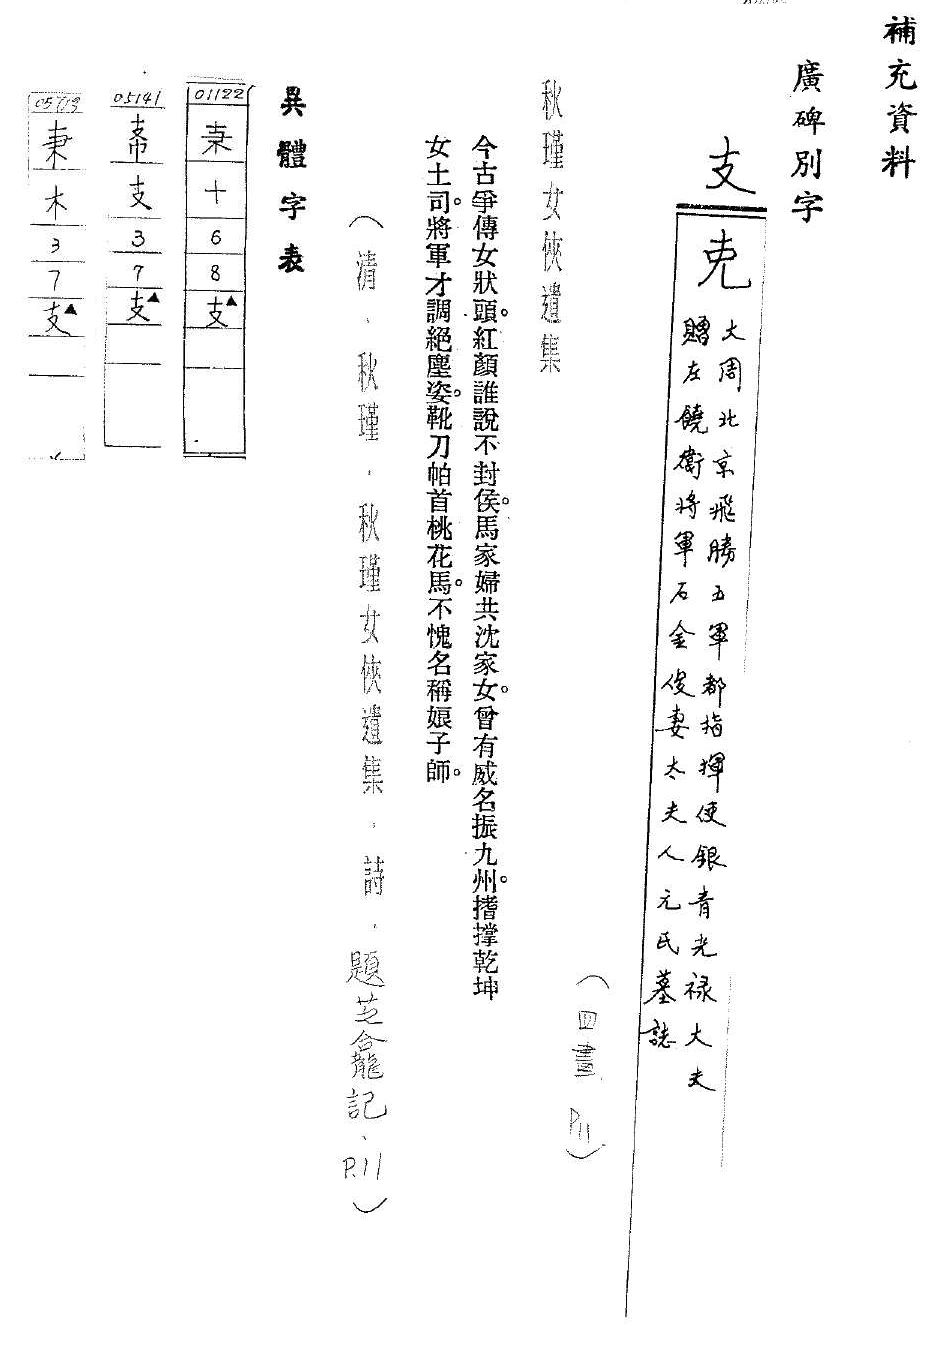 補充資料
廣碑別字
支
大周北京飛勝五軍都指揮使銀青光禄大夫
贈左饒衛將軍石金俊妻太夫人元氏墓誌
(四畫 P11)
秋瑾女俠遺集
今古爭傳女狀頭。紅顏誰說不封侯。馬家婦共沈家女。曾有威名振九州。搘撐乾坤
女土司。將軍才調絕塵姿。靴刀帕首桃花馬。不愧名稱娘子師。
(清.秋瑾.秋瑾女俠遺集.詩.題芝龕記、P.11)
異體字表
01122 十 6 8 支▲
05141 支 3 7 支▲
05719 木 3 7 支▲